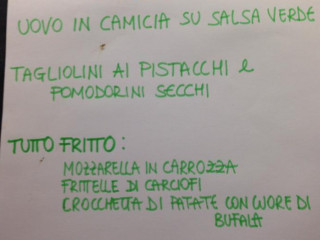 UOVO IN CAMICIA SU SALSA VERDE
TAGLIOLINI AI PISTACCHI e
POMODORINI SECCHI
TUTTO FRITTO:
MOZZARELLA IN CARROZZA
FRITTELLE DI CARCIOFI
CROCCHETTA DI PATATE CON CUORE DI
BUFALA